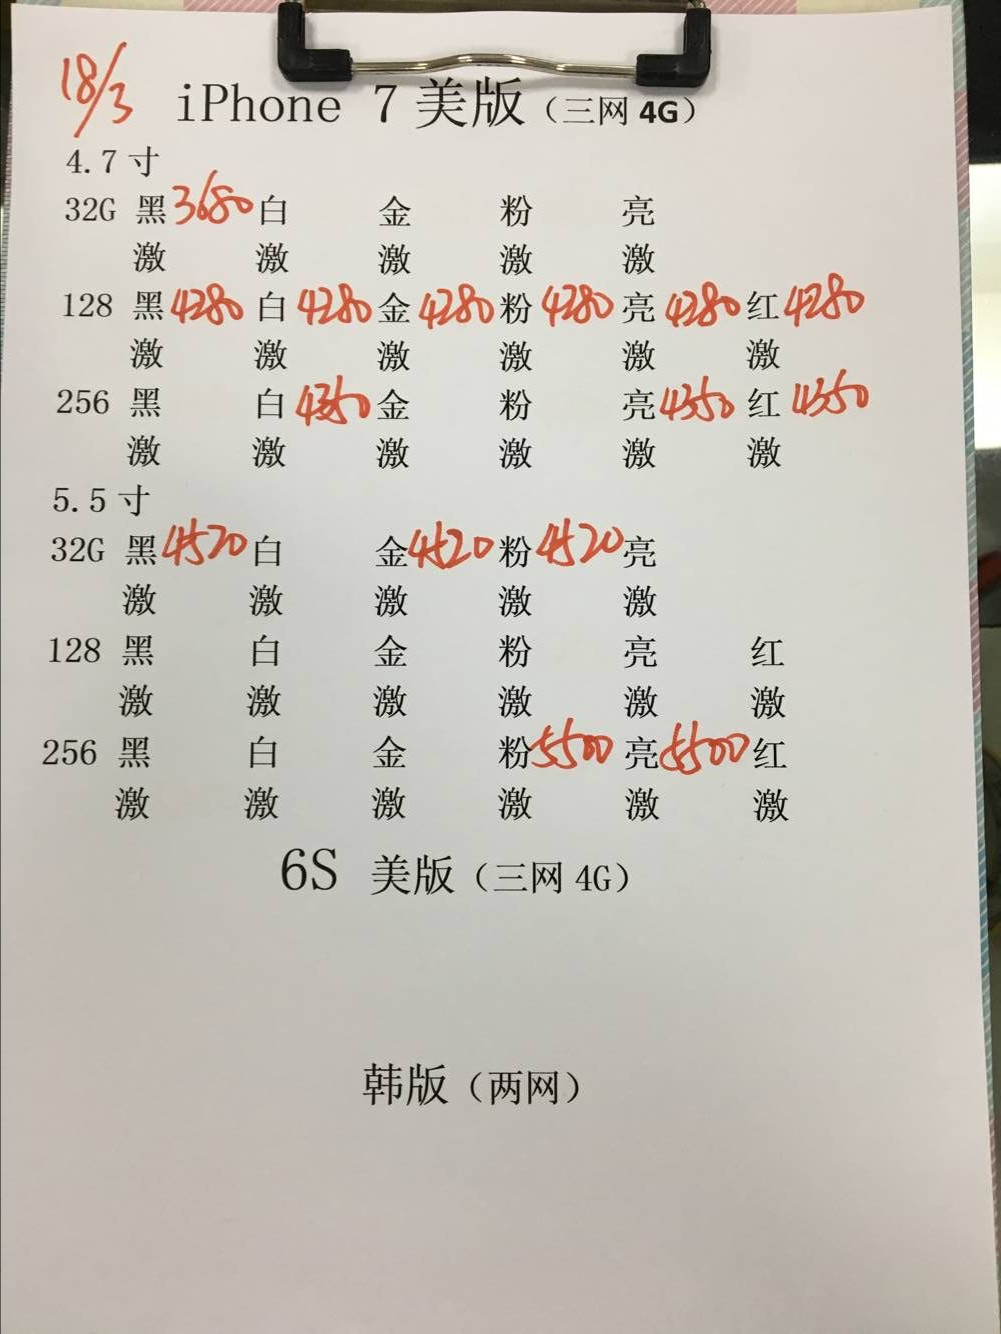 18/3
iPhone 7 美版（三网 4G）
4.7 寸
32G 黑 3680 白 金 粉 亮
激 激 激 激 激
128 黑 4280 白 4280 金 4280 粉 4280 亮 4280 红 4280
激 激 激 激 激 激
256 黑 白 4350 金 粉 亮 4350 红 4350
激 激 激 激 激 激
5.5 寸
32G 黑 4520 白 金 4520 粉 4520 亮
激 激 激 激 激
128 黑 白 金 粉 亮 红
激 激 激 激 激 激
256 黑 白 金 粉 5500 亮 5500 红
激 激 激 激 激 激
6S 美版（三网 4G）
韩版（两网）